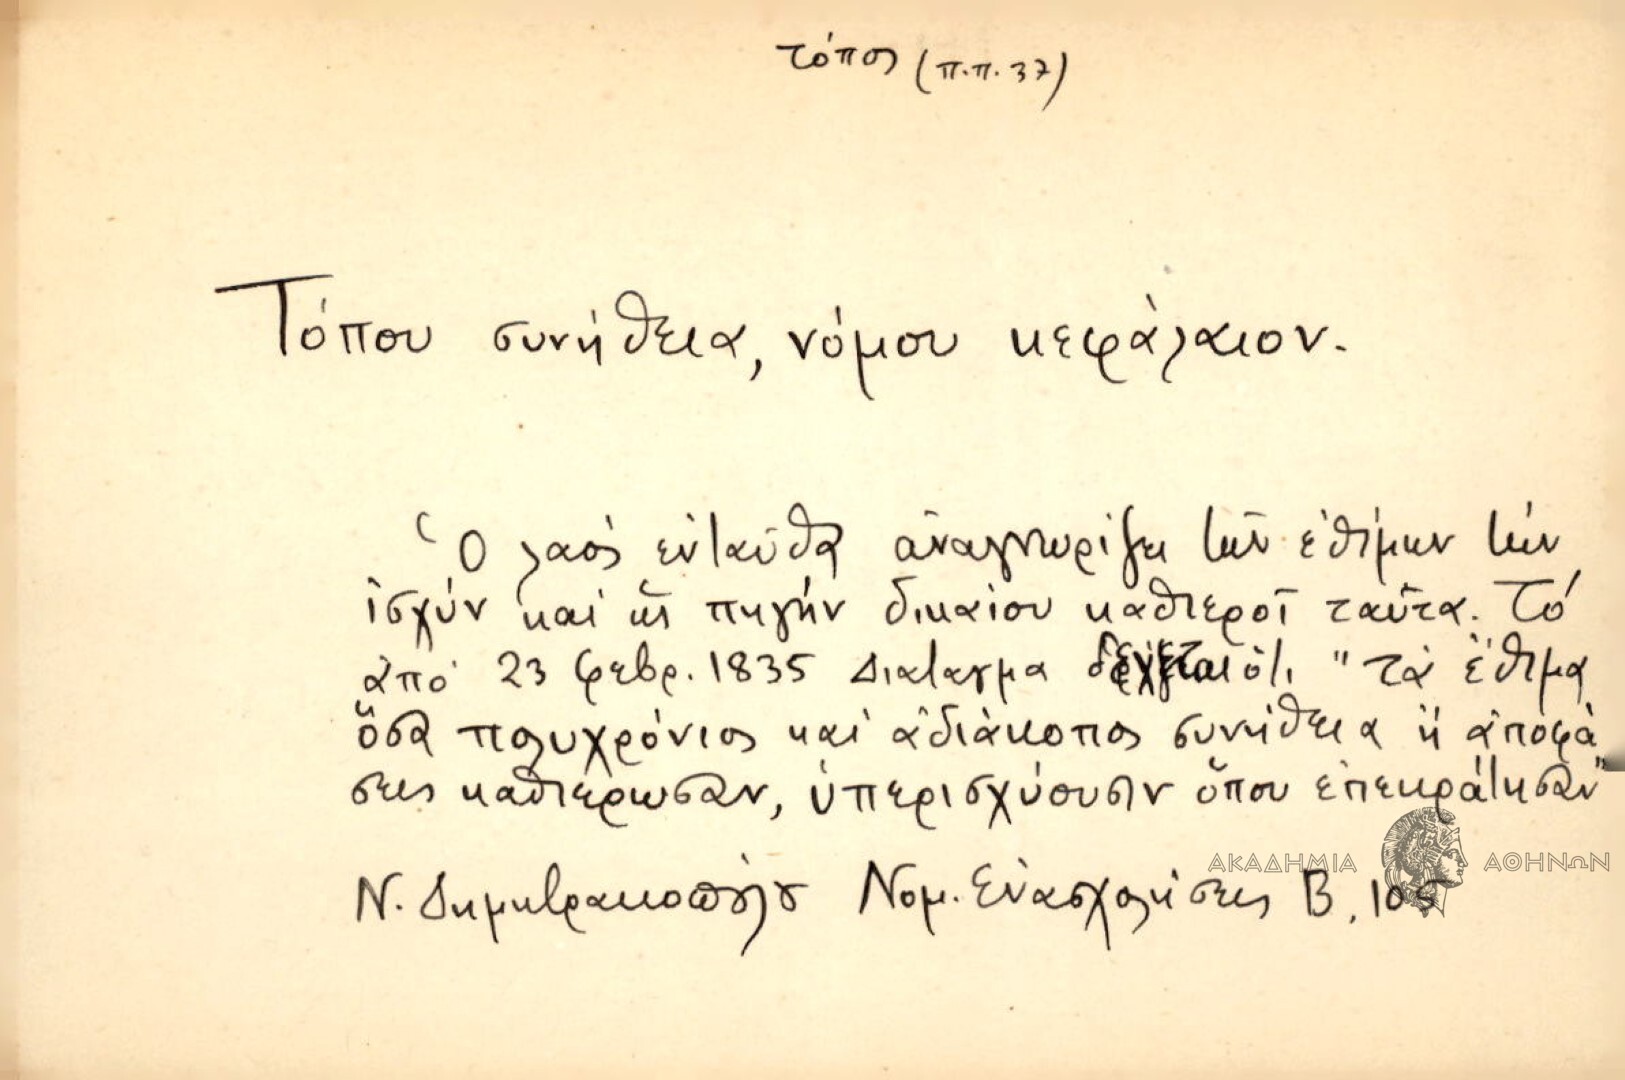 τόπος (π.π. 37)
Τόπου συνήθεια, νόμου κεφάλαιον.
Ὁ λαὸς ἐνταῦθα ἀναγνωρίζει τῶν ἐθίμων τὴν
ἰσχύν καί ὡς πηγήν δικαίου καθιεροῖ ταῦτα. Τό
ἀπό 23 φεβρ. 1835 Διάταγμα δέχεται ὅτι "τὰ ἔθιμα
ὅσα πολυχρόνιος καί ἀδιάκοπος συνήθεια ἤ ἀποφά
σεις καθιέρωσαν, ὑπερισχύουσιν ὅπου ἐπεκράτησαν"
ΑΚΑΔΗΜΙΑ ΑΘΗΝΩΝ
Ν. Δημητρακοπούλου Νομ. Ἐνασχολήσεις Β, 105